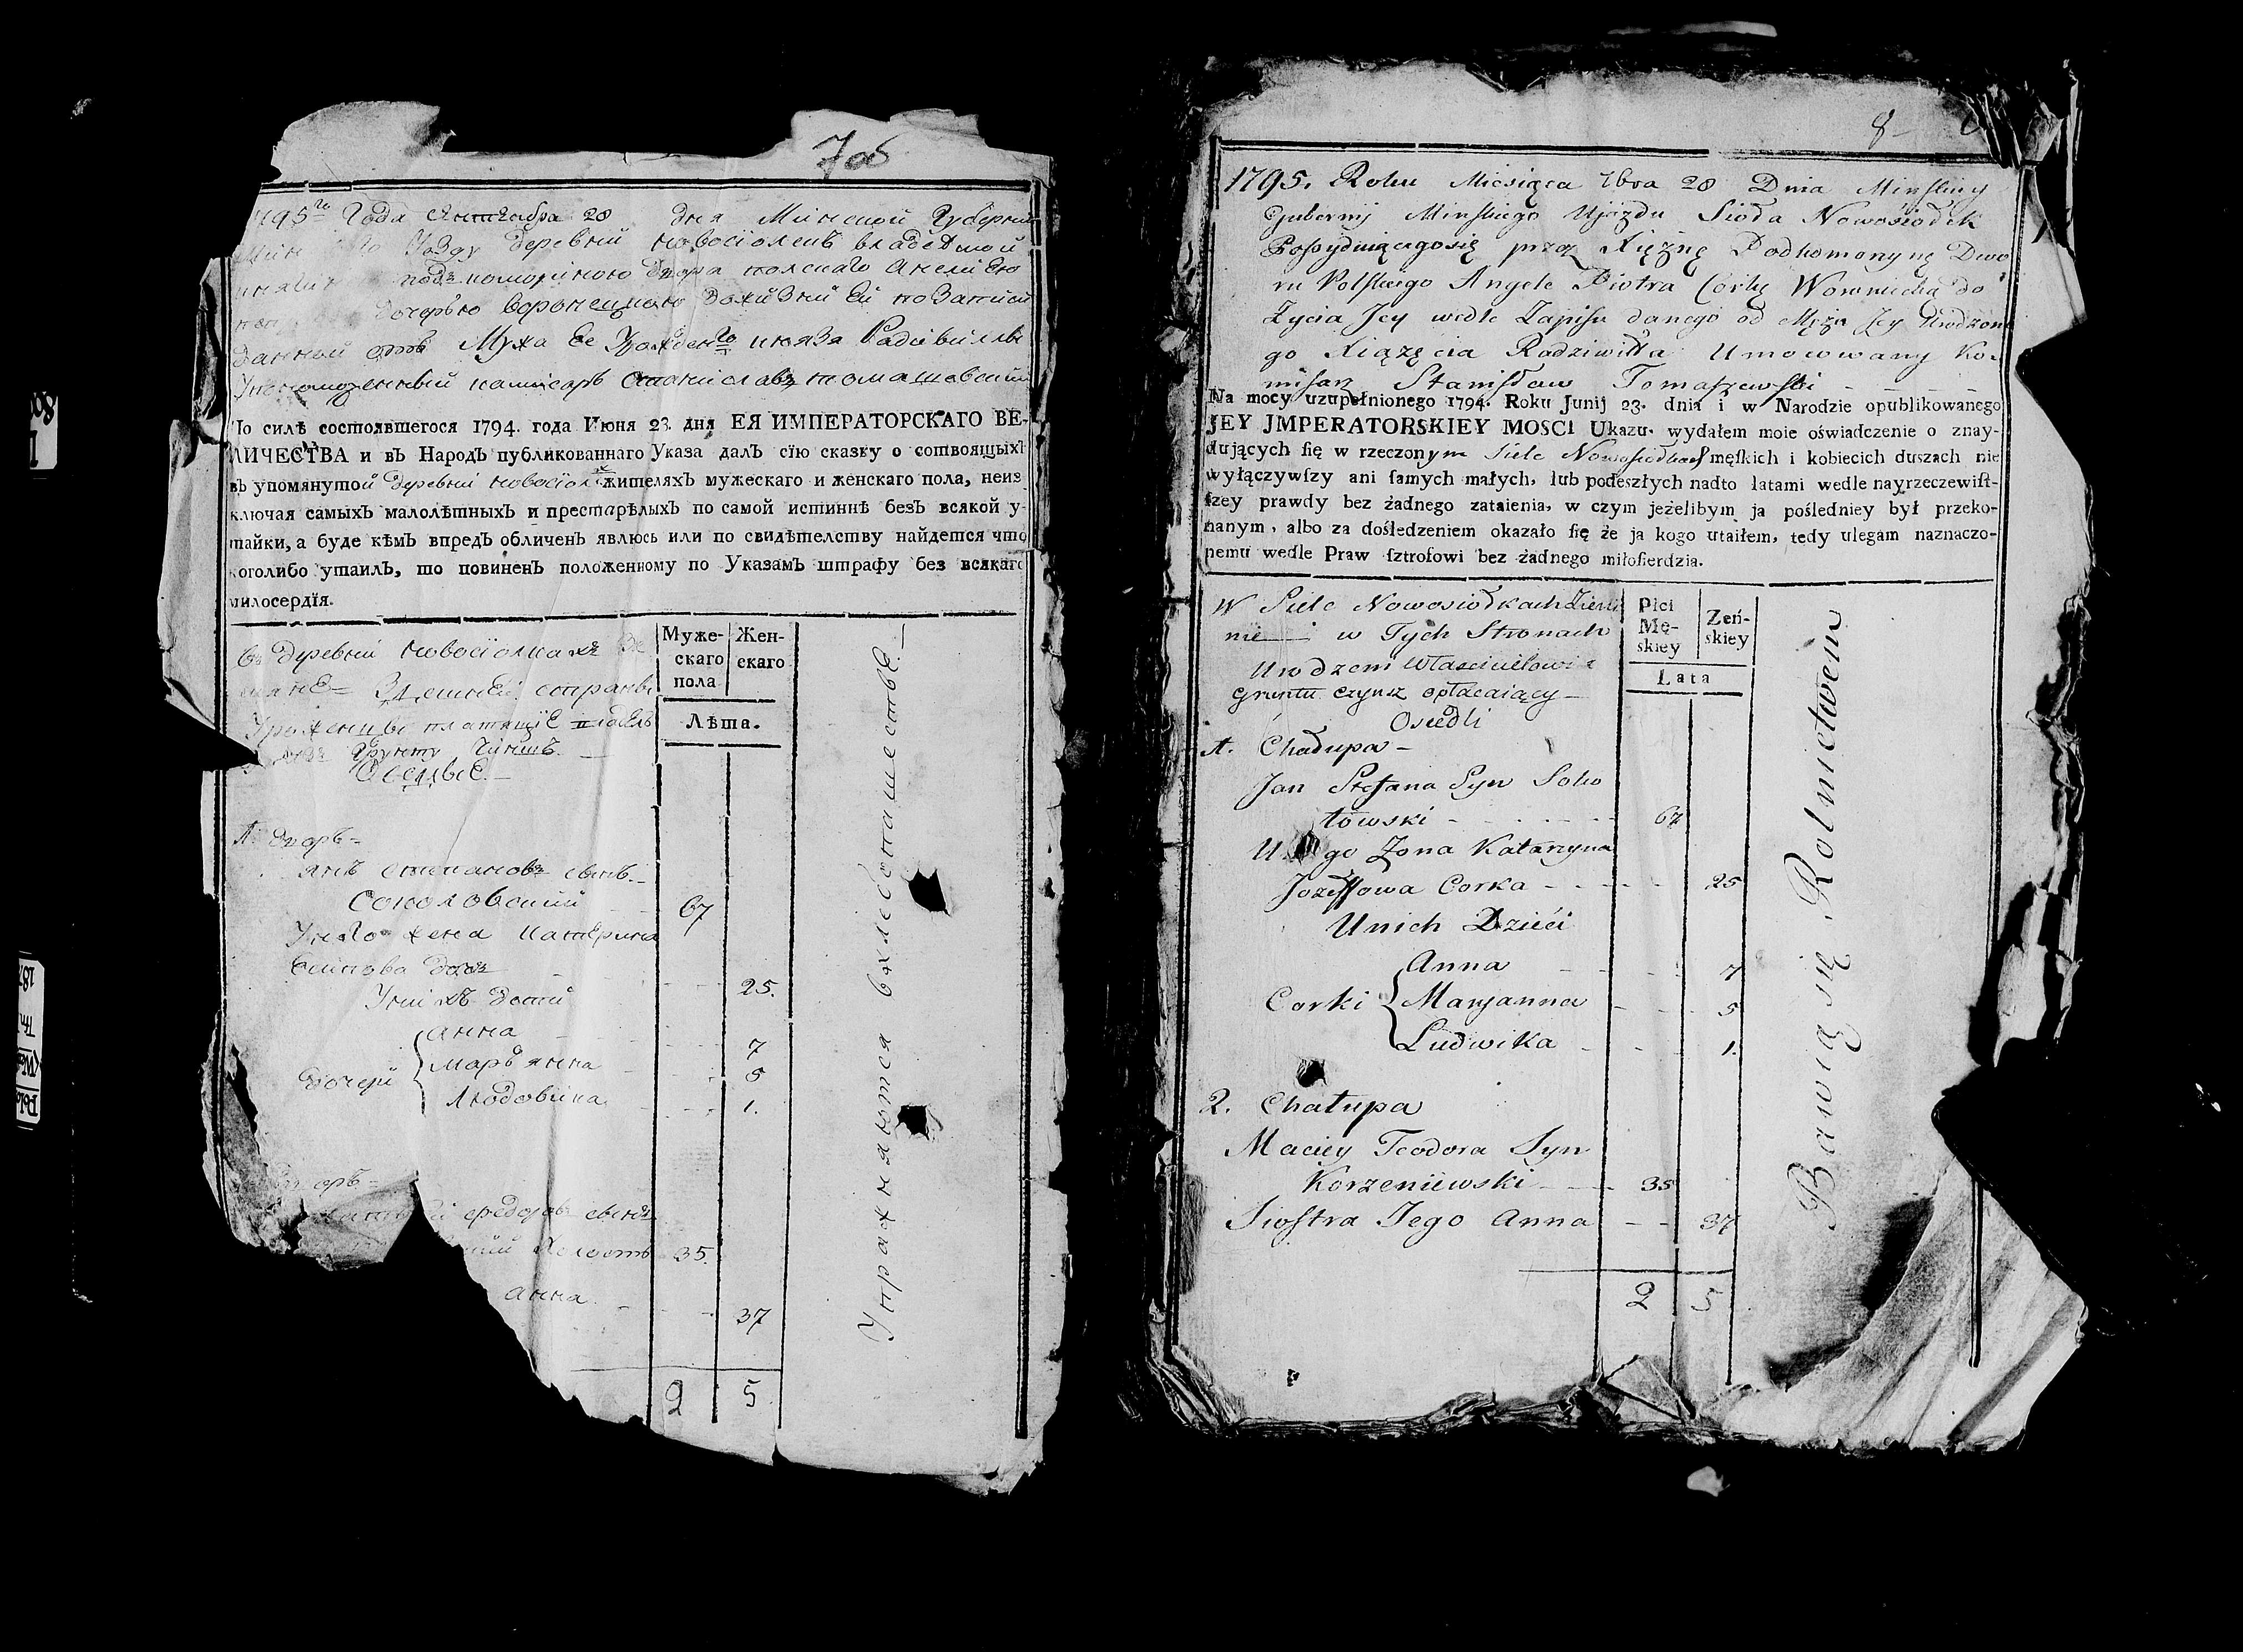 7об
1795го Года Сентября 28 дня Минской Губернии
Уезду деревни Новосіолекъ владеемой
подкоморіною двора полскаго Анелиею
дочерью Воронецкою дожизни Ей по Записи
данной отъ Мужа Ее Урожденго Князя Радивилы
Упономоченный камисаръ Станіславъ Томашевскии
По силѣ состоявшегося 1794. года Июня 23. дня ЕЯ ИМПЕРАТОРСКАГО ВЕ-
ЛИЧЕСТВА и вЪ НародЪ публикованнаго Указа далЪ сїю сказку о сотвоящыхЪ
вЪ упомянутой деревни Новосіол жителяхЪ мужескаго и женскаго пола, неиз
ключая самыхЪ малолѣтныхЪ и престарѣлыхЪ по самой истиннѣ безЪ всякой у-
тайки, а буде кѣмЪ впредЪ обличенЪ явлюсь или по свидѣтелству найдется что
коголибо утаилЪ, то повиненЪ положенному по УказамЪ штрафу без всякаго
милосердїя.
Въ деревни Новосіолкахъ
Здешней страны
Уроженцы платящіе владель
грунту чиншъ.
Оселые.
Муже-
скаго
пола
Жен-
скаго
Лѣта.
1. дворъ
Янъ Степановъ сынъ
Соколовский 67
У него жена Катерина
Осипова дочь 25.
У них дети
дочери { Анна 7
Марьянна 5
Людовика 1.
дворъ
Федоровъ сынъ
холостъ 35.
Анна 37
2 5
Упражняются в хлебопашестве.
8
1795. Roku Miesiąca 7bra 28 Dnia Minskiey
Gubernij Minskiego Ujazdu Sioła Nowosiołek
Possyduiącegosię przez Xiężnę Podkomorzynę Dwo
ru Polskiego Angele Piotra Corkę Woroniecką do
Życia Jey wedle Zapisu danego od Męża Jey Urodzone
go Xiązęcia Radziwiłła Umocowany Ko-
misarz Stanisław Tomaszewski
Na mocy uzupełnionego 1794. Roku Junij 23. dnia i w Narodzie opublikowanego
JEY JMPERATORSKIEY MOSCI Ukazu. wydałem moie oświadczenie o znay-
duiących ſię w rzeczonym Siele Nowosiołkach męſkich i kobiecich duszach nie
wyłączywſzy ani ſamych małych, lub podeszłych nadto latami wedle nayrzeczewiſt-
ſzey prawdy bez żadnego zataienia, w czym jeżelibym ja poślednieу był przeko-
nanym, albo za dośledzeniem okazało ſię że ja kogo utaiłem, tedy ulegam naznaczo-
nemu wedle Praw ſztrofowi bez żadnego miłoſierdzia.
W Siele Nowosiołkach Ziemia
nie w Tych Stronach
Urodzeni Włascicielowi z
gruntu czynsz opłacaiący
Osiedli
Płci
Mę-
skiey
Żeń-
skiey
Lata
1. Chałupa
Jan Stefana Syn Soko
łowski 67
U go Żona Katarzyna
Jozeffowa Corka 25
U nich Dzieći
Corki { Anna 7
Maryanna 5
Ludwika 1.
2. Chałupa
Maciey Teodora Syn
Korzeniewski 35
Siostra Jego Anna 37
2 5
Bawią się Rolnictwem